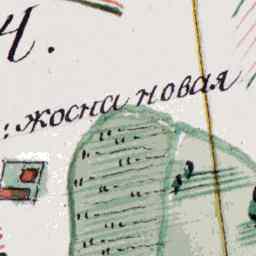 Ч.
: жосна новая